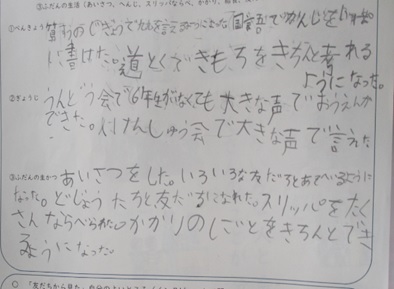 ③ふだんの生活（あいさつ、へんじ、スリッパならべ、かかり、
①べんきょう
算数のじぎょうで
を言えるようになった。国語でかんじを
に書けた。道とくできもちをきちんと考れる
ようになった。
②ぎょうじ
うんどう会で6年生がなくても大きな声でおうえんが
できた。
けんしゅう会で大きな声で言えた
③ふだんの生かつ
あいさつをした。いろいろな友だちとあそべるように
なった。どじょうたちと友だちになれた。スリッパをたく
さんならべられた。かかりのしごとをきちんとでき
るようになった。
○「友だちから見た、自分のよいところ